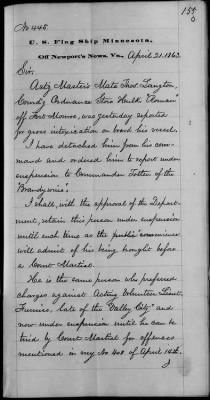 154
No 445.
U. S. Flag Ship Minnesota,
Off Newport's News, Va., April 21. 1863
Sir:
Actg Master's Mate Thos. Langton,
Comd'g Ordnance Store Hulk "Roman"
off Fort Monroe, was yesterday reported
for gross intoxication on board his vessel.
I have detached him from his com-
mand and ordered him to report under
suspension to Commander Totten of the
"Brandywine".
I shall, with the approval of the Depart-
ment, retain this person under suspension
until such time as the public convenience
will admit of his being brought before
a Court Martial.
He is the same person who preferred
charges against Acting Volunteer Lieut.
Furniss, late of the "Valley City" and
now under suspension until he can be
tried by Court Martial for offences
mentioned in my No 408 of April 14th.